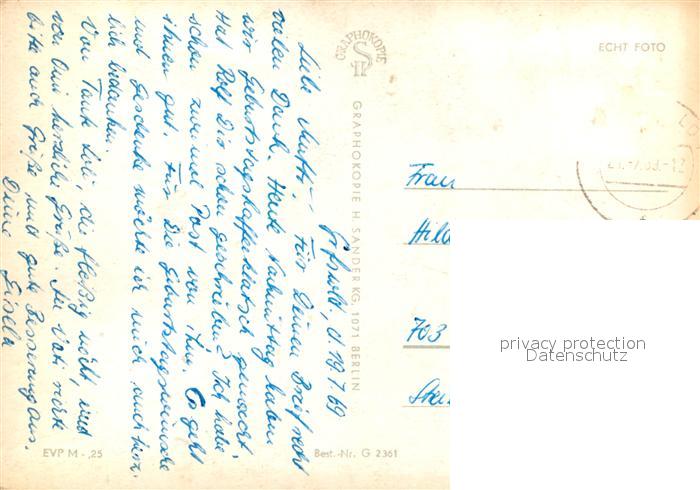 Gifswald, d. 19.7.69
Liebe Mutti! Für Deinen Brief recht
vielen Dank. Heute Nachmittag haben
wir Geburtstagskaffeeklatsch gemacht.
Hat Rolf Dir schon geschrieben? Ich habe
schon zweimal Post von ihm. Es geht
ihnen gut. Für die Geburtstagswünsche
und Geschenke möchte ich mich auch herz-
lich bedanken.
Von Tante Loli, die fleißig näht, und
von Omi herzliche Grüße. An Vati richte
bitte auch Grüße und gute Besserung aus.
Deine Gisela
EVP M -,25
GRAPHOKOPIE
GRAPHOKOPIE H. SANDER KG, 1071 BERLIN
Best.-Nr. G 2361
ECHT FOTO
Frau
Hild
703
privacy protection
Datenschutz